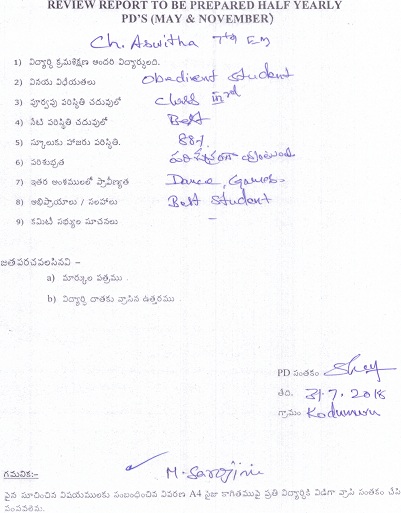 REVIEW REPORT TO BE PREPARED HALF YEARLY
PD'S (MAY & NOVEMBER)
Ch. Aswitha 7th EM
1) విద్యార్థి క్రమశిక్షణ అందరి విద్యార్థులది.
2) వినయ విధేయతలు Obedirent Student
3) పూర్వపు పరిస్థితి చదువులో Class IIIrd
4) నేటి పరిస్థితి చదువులో Best
5) స్కూలుకు హాజరు పరిస్థితి. 88%
6) పరిశుభ్రత
7) ఇతర అంశములలో ప్రావీణ్యత Dance, Games-
8) అభిప్రాయాలు / సలహాలు Best Student
9) కమిటీ సభ్యుల సూచనలు –
జతపరచవలసినవి –
a) మార్కుల పత్రము
b) విద్యార్థి దాతకు వ్రాసిన ఉత్తరము
PD సంతకం
తేది. 31.7.2018
గ్రామం Kodumuru
M. Sarojini
గమనిక:-
పైన సూచించిన విషయములకు సంబంధించిన వివరణ A4 సైజు కాగితముపై ప్రతి విద్యార్థికి విడిగా వ్రాసి సంతకం చేసి
పంపవలెను.